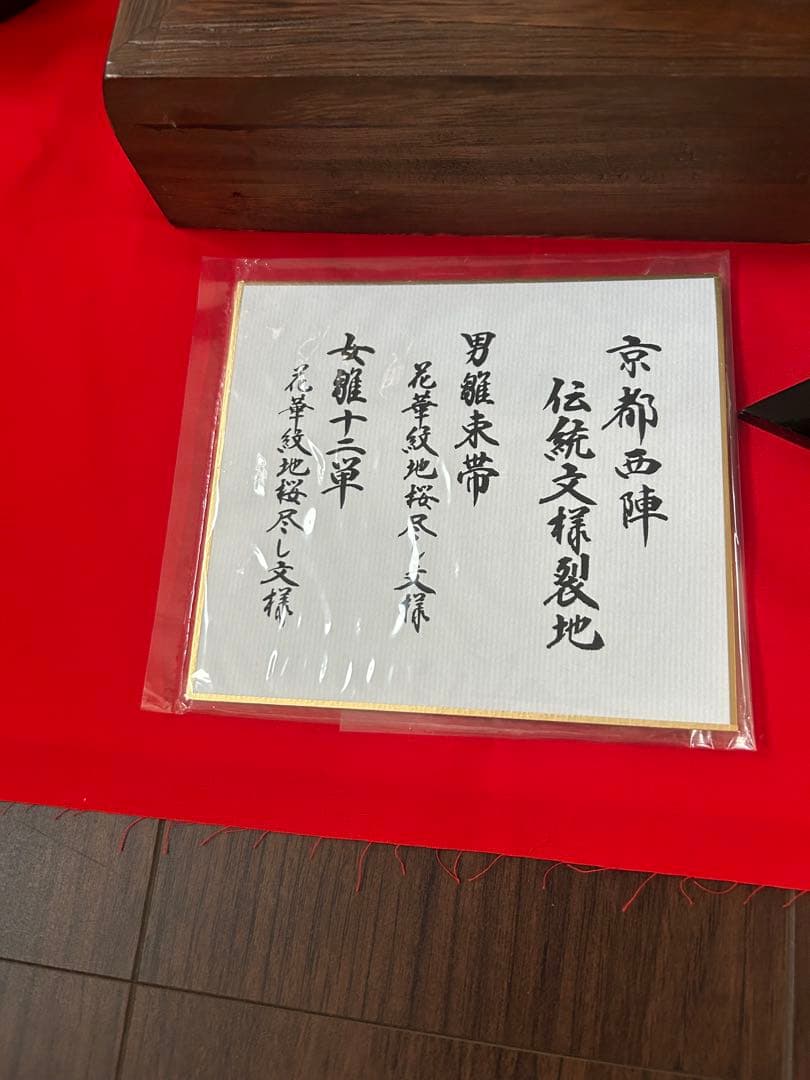 京都西陣
伝統文様裂地
男雛束帯
花華紋地桜尽し文様
女雛十二単
花華紋地桜尽し文様